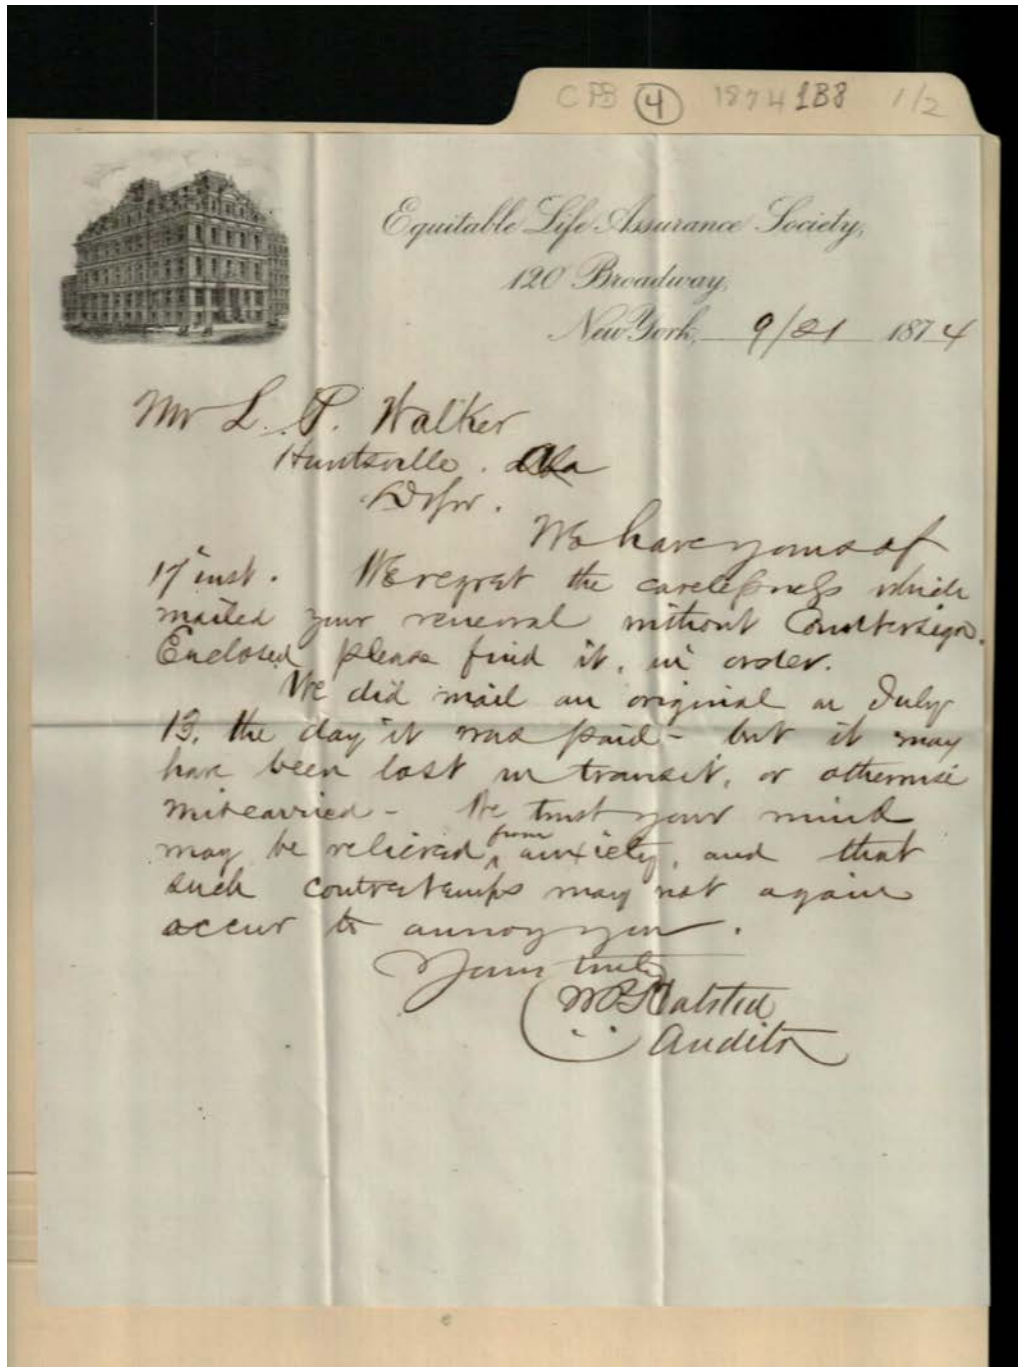 CPB 4 1874 1B8 1/2
Equitable Life Assurance Society,
120 Broadway,
New York, 9/21 1874
Mr L. P. Walker
Huntsville. Ala
D Sir.
We have yours of
17 inst. We regret the carelessness which
mailed your renewal without Countersign.
Enclosed please find it, in order.
We did mail an original on July
13, the day it was paid - but it may
have been lost in transit, or otherwise
miscarried - We trust your mind
may be relieved from anxiety, and that
such contretemps may not again
occur to annoy you.
Yours truly
Halsted
Auditor